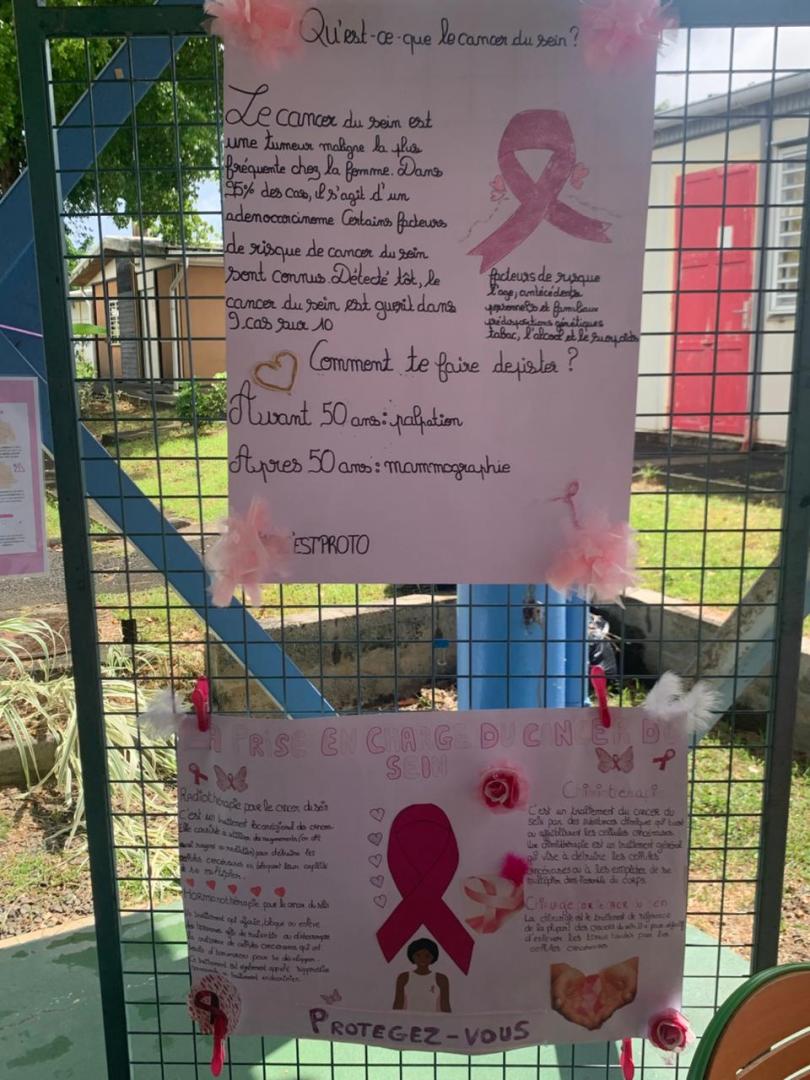 Qu'est-ce-que le cancer du sein?
Le cancer du sein est
une tumeur maligne la plus
fréquente chez la femme. Dans
95% des cas, il s'agit d'un
adenocarcinome Certains facteurs
de risque de cancer du sein
sont connus. Détecté tôt, le
cancer du sein est guerit dans
9 cas sur 10
facteurs de risque
l'age, antécédents
personnels et familiaux
prédispositions génétiques
tabac, l'alcool et le surpoids
Comment te faire depister ?
Avant 50 ans: palpation
Apres 50 ans: mammographie
EST PROTO
LA PRISE EN CHARGE DU CANCER DU
SEIN
Radiothérapie pour le cancer du sein
C'est un traitement locorégional du cancer
elle consiste a utiliser des rayonnements
pour détruire les
cellules cancereuses en bloquant leur capacité
a se multiplier.
Hormonothérapie pour le cancer du sein
Un traitement qui ajoute, bloque ou enlève
des hormones afin de ralentir ou d'interrompre
la croissance de cellules cancereuses qui ont
besoin d'hormones pour se développer.
Ce traitement est également appelé
traitement endocrinien.
C'est un traitement du cancer du
sein par des substances chimiques qui tuent
ou affaiblissent les cellules cancereuses.
Une chimiothérapie est un traitement général
qui vise à détruire les cellules
cancéreuses ou à les empêcher de se
multiplier dans l'ensemble du corps.
La chirurgie est le traitement de référence
de la plupart des cancers du sein
d'enlever les
cellules cancereuses
PROTEGEZ-VOUS